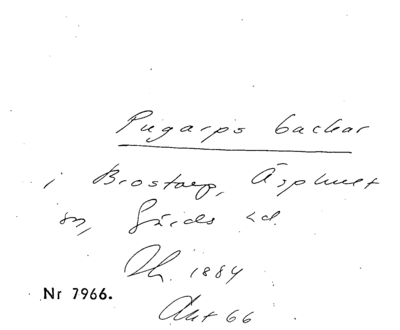 Pugarps backar
i Brostorp, Äsphult
sn, Gärds hd.
Th. 1884
Nr 7966.
Akt 66